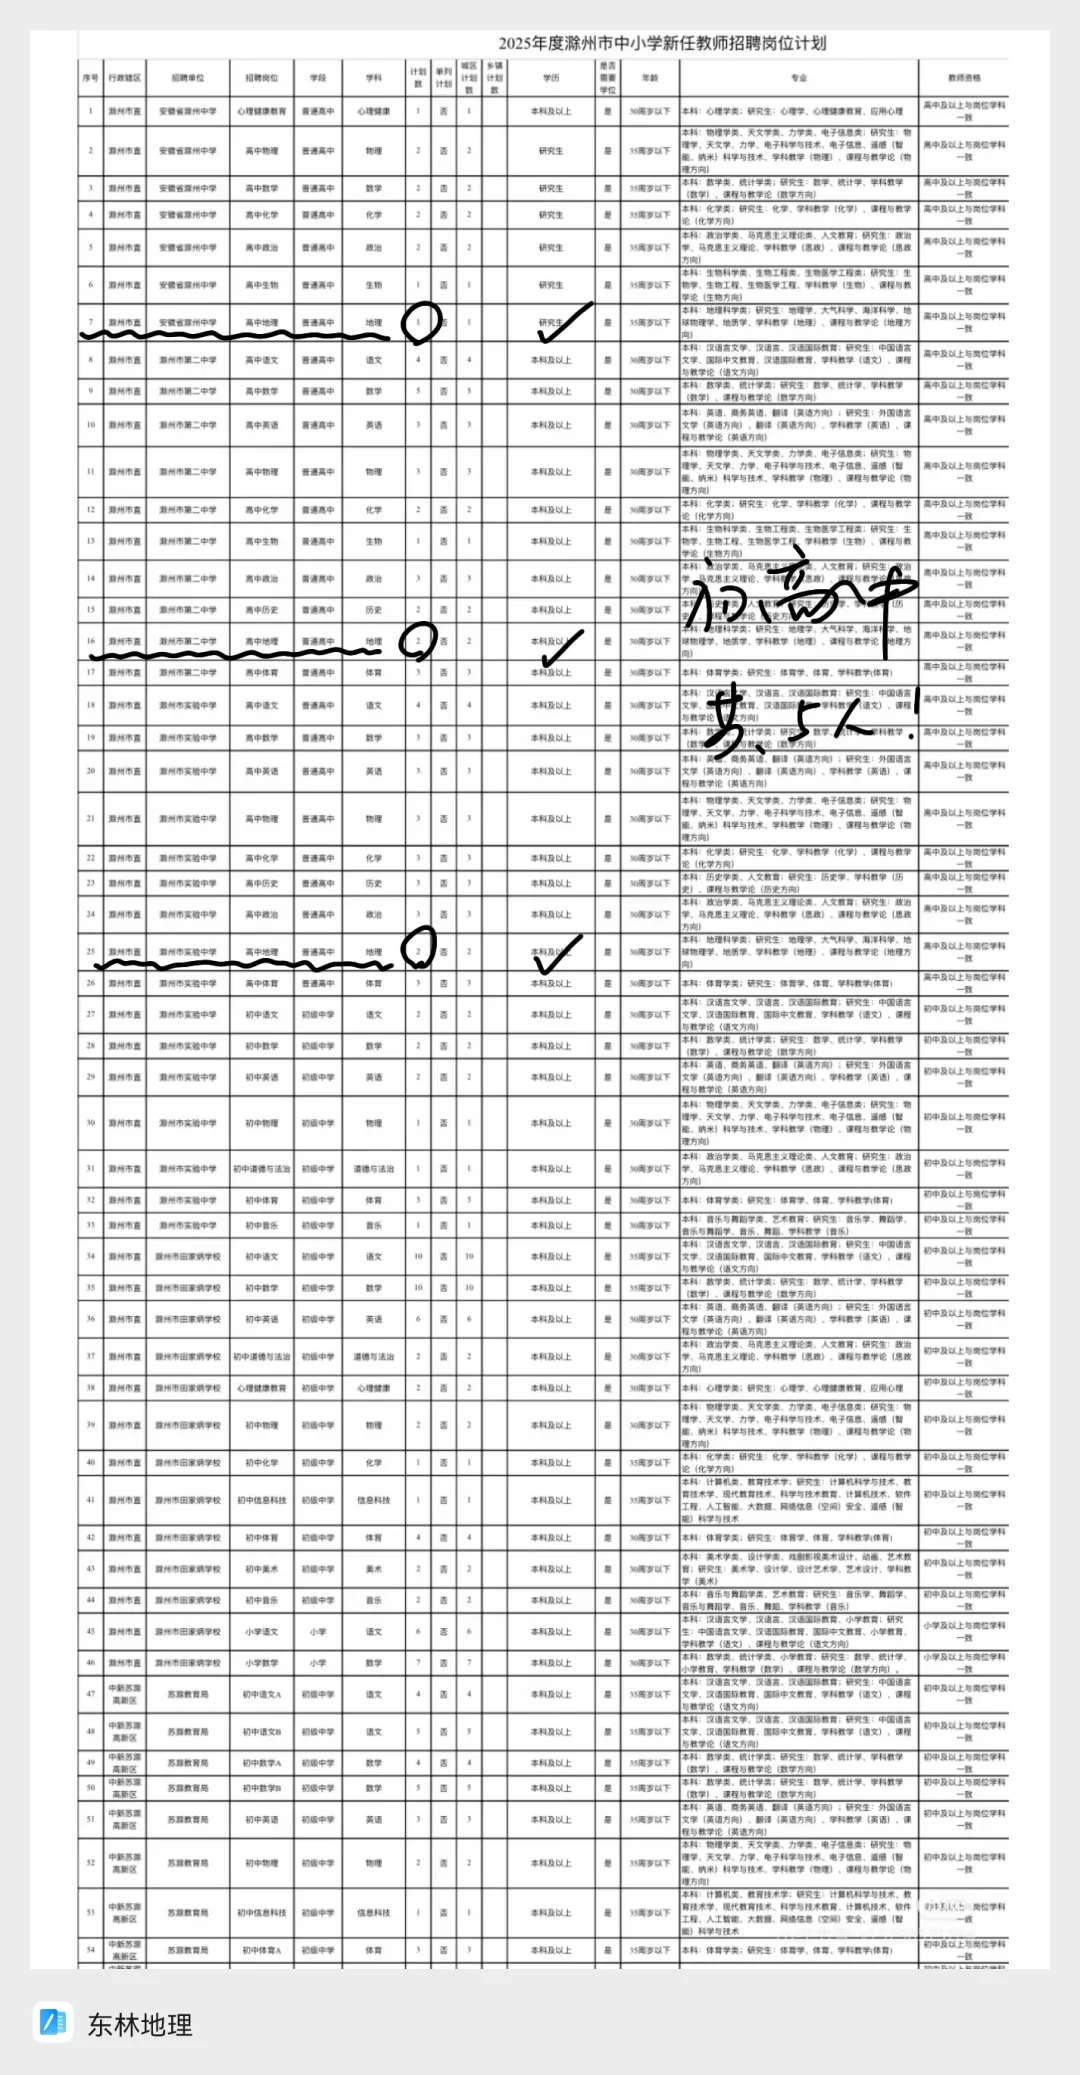 2025年度滁州市中小学新任教师招聘岗位计划
序号 行政辖区 招聘单位 招聘岗位 学段 学科 计划数 单列计划 城区计划数 乡镇计划数 学历 是否需要学位 年龄 专业 教师资格
1 滁州市直 安徽省滁州中学 心理健康教育 普通高中 心理健康 1 否 1 本科及以上 是 30周岁以下 本科：心理学类；研究生：心理学、心理健康教育、应用心理 高中及以上与岗位学科一致
2 滁州市直 安徽省滁州中学 高中物理 普通高中 物理 2 否 2 研究生 是 35周岁以下 本科：物理学类、天文学类、力学类、电子信息类；研究生：物理学、天文学、力学、电子科学与技术、电子信息、遥感（智能、纳米）科学与技术、学科教学（物理）、课程与教学论（物理方向） 高中及以上与岗位学科一致
3 滁州市直 安徽省滁州中学 高中数学 普通高中 数学 2 否 2 研究生 是 35周岁以下 本科：数学类、统计学类；研究生：数学、统计学、学科教学（数学）、课程与教学论（数学方向） 高中及以上与岗位学科一致
4 滁州市直 安徽省滁州中学 高中化学 普通高中 化学 2 否 2 研究生 是 35周岁以下 本科：化学类；研究生：化学、学科教学（化学）、课程与教学论（化学方向） 高中及以上与岗位学科一致
5 滁州市直 安徽省滁州中学 高中政治 普通高中 政治 2 否 2 研究生 是 35周岁以下 本科：政治学类、马克思主义理论类、人文教育；研究生：政治学、马克思主义理论、学科教学（思政）、课程与教学论（思政方向） 高中及以上与岗位学科一致
6 滁州市直 安徽省滁州中学 高中生物 普通高中 生物 1 否 1 研究生 是 35周岁以下 本科：生物科学类、生物工程类、生物医学工程类；研究生：生物学、生物工程、生物医学工程、学科教学（生物）、课程与教学论（生物方向） 高中及以上与岗位学科一致
7 滁州市直 安徽省滁州中学 高中地理 普通高中 地理 1 否 1 研究生 是 35周岁以下 本科：地理科学类；研究生：地理学、大气科学、海洋科学、地球物理学、地质学、学科教学（地理）、课程与教学论（地理方向） 高中及以上与岗位学科一致
8 滁州市直 滁州市第二中学 高中语文 普通高中 语文 4 否 4 本科及以上 是 30周岁以下 本科：汉语言文学、汉语言、汉语国际教育；研究生：中国语言文学、国际中文教育、汉语国际教育、学科教学（语文）、课程与教学论（语文方向） 高中及以上与岗位学科一致
9 滁州市直 滁州市第二中学 高中数学 普通高中 数学 5 否 5 本科及以上 是 30周岁以下 本科：数学类、统计学类；研究生：数学、统计学、学科教学（数学）、课程与教学论（数学方向） 高中及以上与岗位学科一致
10 滁州市直 滁州市第二中学 高中英语 普通高中 英语 3 否 3 本科及以上 是 30周岁以下 本科：英语、商务英语、翻译（英语方向）；研究生：外国语言文学（英语方向）、翻译（英语方向）、学科教学（英语）、课程与教学论（英语方向） 高中及以上与岗位学科一致
11 滁州市直 滁州市第二中学 高中物理 普通高中 物理 3 否 3 本科及以上 是 30周岁以下 本科：物理学类、天文学类、力学类、电子信息类；研究生：物理学、天文学、力学、电子科学与技术、电子信息、遥感（智能、纳米）科学与技术、学科教学（物理）、课程与教学论（物理方向） 高中及以上与岗位学科一致
12 滁州市直 滁州市第二中学 高中化学 普通高中 化学 2 否 2 本科及以上 是 30周岁以下 本科：化学类；研究生：化学、学科教学（化学）、课程与教学论（化学方向） 高中及以上与岗位学科一致
13 滁州市直 滁州市第二中学 高中生物 普通高中 生物 1 否 1 本科及以上 是 30周岁以下 本科：生物科学类、生物工程类、生物医学工程类；研究生：生物学、生物工程、生物医学工程、学科教学（生物）、课程与教学论（生物方向） 高中及以上与岗位学科一致
14 滁州市直 滁州市第二中学 高中政治 普通高中 政治 3 否 3 本科及以上 是 30周岁以下 政治学类、马克思主义理论类、人文教育；研究生：政治学、马克思主义理论、学科教学（思政）、课程与教学论 高中及以上与岗位学科一致
15 滁州市直 滁州市第二中学 高中历史 普通高中 历史 2 否 2 本科及以上 是 30周岁以下 本科：历史学类、人文教育；研究生：历史学、学科教学（历史）、课程与教学论（历史方向） 高中及以上与岗位学科一致
16 滁州市直 滁州市第二中学 高中地理 普通高中 地理 2 否 2 本科及以上 是 30周岁以下 本科：地理科学类；研究生：地理学、大气科学、海洋科学、地球物理学、地质学、学科教学（地理）、课程与教学论（地理方向） 高中及以上与岗位学科一致
初、高中
17 滁州市直 滁州市实验中学 高中体育 普通高中 体育 3 否 3 本科及以上 是 30周岁以下 本科：体育学类；研究生：体育学、体育、学科教学(体育) 高中及以上与岗位学科一致
18 滁州市直 滁州市实验中学 高中语文 普通高中 语文 4 否 4 本科及以上 是 30周岁以下 本科：汉语言文学、汉语言、汉语国际教育；研究生：中国语言文学、国际中文教育、汉语国际教育、学科教学（语文）、课程与教学论（语文方向） 高中及以上与岗位学科一致
共、5人！
19 滁州市直 滁州市实验中学 高中数学 普通高中 数学 3 否 3 本科及以上 是 30周岁以下 本科：数学类、统计学类；研究生：数学、统计学、学科教学（数学）、课程与教学论（数学方向） 高中及以上与岗位学科一致
20 滁州市直 滁州市实验中学 高中英语 普通高中 英语 3 否 3 本科及以上 是 30周岁以下 本科：英语、商务英语、翻译（英语方向）；研究生：外国语言文学（英语方向）、翻译（英语方向）、学科教学（英语）、课程与教学论（英语方向） 高中及以上与岗位学科一致
21 滁州市直 滁州市实验中学 高中物理 普通高中 物理 3 否 3 本科及以上 是 30周岁以下 本科：物理学类、天文学类、力学类、电子信息类；研究生：物理学、天文学、力学、电子科学与技术、电子信息、遥感（智能、纳米）科学与技术、学科教学（物理）、课程与教学论（物理方向） 高中及以上与岗位学科一致
22 滁州市直 滁州市实验中学 高中化学 普通高中 化学 3 否 3 本科及以上 是 30周岁以下 本科：化学类；研究生：化学、学科教学（化学）、课程与教学论（化学方向） 高中及以上与岗位学科一致
23 滁州市直 滁州市实验中学 高中历史 普通高中 历史 3 否 3 本科及以上 是 30周岁以下 本科：历史学类、人文教育；研究生：历史学、学科教学（历史）、课程与教学论（历史方向） 高中及以上与岗位学科一致
24 滁州市直 滁州市实验中学 高中政治 普通高中 政治 3 否 3 本科及以上 是 30周岁以下 本科：政治学类、马克思主义理论类、人文教育；研究生：政治学、马克思主义理论、学科教学（思政）、课程与教学论（思政方向） 高中及以上与岗位学科一致
25 滁州市直 滁州市实验中学 高中地理 普通高中 地理 2 否 2 本科及以上 是 30周岁以下 本科：地理科学类；研究生：地理学、大气科学、海洋科学、地球物理学、地质学、学科教学（地理）、课程与教学论（地理方向） 高中及以上与岗位学科一致
26 滁州市直 滁州市实验中学 高中体育 普通高中 体育 3 否 3 本科及以上 是 30周岁以下 本科：体育学类；研究生：体育学、体育、学科教学(体育) 高中及以上与岗位学科一致
27 滁州市直 滁州市实验中学 初中语文 初级中学 语文 2 否 2 本科及以上 是 30周岁以下 本科：汉语言文学、汉语言、汉语国际教育；研究生：中国语言文学、汉语国际教育、国际中文教育、学科教学（语文）、课程与教学论（语文方向） 初中及以上与岗位学科一致
28 滁州市直 滁州市实验中学 初中数学 初级中学 数学 2 否 2 本科及以上 是 30周岁以下 本科：数学类、统计学类；研究生：数学、统计学、学科教学（数学）、课程与教学论（数学方向） 初中及以上与岗位学科一致
29 滁州市直 滁州市实验中学 初中英语 初级中学 英语 2 否 2 本科及以上 是 30周岁以下 本科：英语、商务英语、翻译（英语方向）；研究生：外国语言文学（英语方向）、翻译（英语方向）、学科教学（英语）、课程与教学论（英语方向） 初中及以上与岗位学科一致
30 滁州市直 滁州市实验中学 初中物理 初级中学 物理 1 否 1 本科及以上 是 30周岁以下 本科：物理学类、天文学类、力学类、电子信息类；研究生：物理学、天文学、力学、电子科学与技术、电子信息、遥感（智能、纳米）科学与技术、学科教学（物理）、课程与教学论（物理方向） 初中及以上与岗位学科一致
31 滁州市直 滁州市实验中学 初中道德与法治 初级中学 道德与法治 1 否 1 本科及以上 是 30周岁以下 本科：政治学类、马克思主义理论类、人文教育；研究生：政治学、马克思主义理论、学科教学（思政）、课程与教学论（思政方向） 初中及以上与岗位学科一致
32 滁州市直 滁州市实验中学 初中体育 初级中学 体育 3 否 3 本科及以上 是 30周岁以下 本科：体育学类；研究生：体育学、体育、学科教学(体育) 初中及以上与岗位学科一致
33 滁州市直 滁州市实验中学 初中音乐 初级中学 音乐 1 否 1 本科及以上 是 30周岁以下 本科：音乐与舞蹈学类、艺术教育；研究生：音乐学、舞蹈学、音乐与舞蹈学、音乐、舞蹈、学科教学（音乐） 初中及以上与岗位学科一致
34 滁州市直 滁州市田家炳学校 初中语文 初级中学 语文 10 否 10 本科及以上 是 35周岁以下 本科：汉语言文学、汉语言、汉语国际教育；研究生：中国语言文学、汉语国际教育、国际中文教育、学科教学（语文）、课程与教学论（语文方向） 初中及以上与岗位学科一致
35 滁州市直 滁州市田家炳学校 初中数学 初级中学 数学 10 否 10 本科及以上 是 35周岁以下 本科：数学类、统计学类；研究生：数学、统计学、学科教学（数学）、课程与教学论（数学方向） 初中及以上与岗位学科一致
36 滁州市直 滁州市田家炳学校 初中英语 初级中学 英语 6 否 6 本科及以上 是 30周岁以下 本科：英语、商务英语、翻译（英语方向）；研究生：外国语言文学（英语方向）、翻译（英语方向）、学科教学（英语）、课程与教学论（英语方向） 初中及以上与岗位学科一致
37 滁州市直 滁州市田家炳学校 初中道德与法治 初级中学 道德与法治 2 否 2 本科及以上 是 30周岁以下 本科：政治学类、马克思主义理论类、人文教育；研究生：政治学、马克思主义理论、学科教学（思政）、课程与教学论（思政方向） 初中及以上与岗位学科一致
38 滁州市直 滁州市田家炳学校 心理健康教育 初级中学 心理健康 2 否 2 本科及以上 是 30周岁以下 本科：心理学类；研究生：心理学、心理健康教育、应用心理 初中及以上与岗位学科一致
39 滁州市直 滁州市田家炳学校 初中物理 初级中学 物理 2 否 2 本科及以上 是 30周岁以下 本科：物理学类、天文学类、力学类、电子信息类；研究生：物理学、天文学、力学、电子科学与技术、电子信息、遥感（智能、纳米）科学与技术、学科教学（物理）、课程与教学论（物理方向） 初中及以上与岗位学科一致
40 滁州市直 滁州市田家炳学校 初中化学 初级中学 化学 1 否 1 本科及以上 是 35周岁以下 本科：化学类；研究生：化学、学科教学（化学）、课程与教学论（化学方向） 初中及以上与岗位学科一致
41 滁州市直 滁州市田家炳学校 初中信息科技 初级中学 信息科技 1 否 1 本科及以上 是 35周岁以下 本科：计算机类、教育技术学；研究生：计算机科学与技术、教育技术学、现代教育技术、科学与技术教育、计算机技术、软件工程、人工智能、大数据、网络信息（空间）安全、遥感（智能）科学与技术 初中及以上与岗位学科一致
42 滁州市直 滁州市田家炳学校 初中体育 初级中学 体育 4 否 4 本科及以上 是 30周岁以下 本科：体育学类；研究生：体育学、体育、学科教学(体育) 初中及以上与岗位学科一致
43 滁州市直 滁州市田家炳学校 初中美术 初级中学 美术 2 否 2 本科及以上 是 30周岁以下 本科：美术学类、设计学类、戏剧影视美术设计、动画、艺术教育；研究生：美术学、设计学、设计艺术学、艺术设计、学科教学（美术） 初中及以上与岗位学科一致
44 滁州市直 滁州市田家炳学校 初中音乐 初级中学 音乐 2 否 2 本科及以上 是 30周岁以下 本科：音乐与舞蹈学类、艺术教育；研究生：音乐学、舞蹈学、音乐与舞蹈学、音乐、舞蹈、学科教学（音乐） 初中及以上与岗位学科一致
45 滁州市直 滁州市田家炳学校 小学语文 小学 语文 6 否 6 本科及以上 是 30周岁以下 本科：汉语言文学、汉语言、汉语国际教育、小学教育；研究生：中国语言文学、汉语国际教育、国际中文教育、小学教育、学科教学（语文）、课程与教学论（语文方向） 小学及以上与岗位学科一致
46 滁州市直 滁州市田家炳学校 小学数学 小学 数学 7 否 7 本科及以上 是 30周岁以下 本科：数学类、统计学类、小学教育；研究生：数学、统计学、小学教育、学科教学（数学）、课程与教学论（数学方向）。 小学及以上与岗位学科一致
47 中新苏滁高新区 苏滁教育局 初中语文A 初级中学 语文 4 否 4 本科及以上 是 35周岁以下 本科：汉语言文学、汉语言、汉语国际教育；研究生：中国语言文学、汉语国际教育、国际中文教育、学科教学（语文）、课程与教学论（语文方向） 初中及以上与岗位学科一致
48 中新苏滁高新区 苏滁教育局 初中语文B 初级中学 语文 5 否 5 本科及以上 是 35周岁以下 本科：汉语言文学、汉语言、汉语国际教育；研究生：中国语言文学、汉语国际教育、国际中文教育、学科教学（语文）、课程与教学论（语文方向） 初中及以上与岗位学科一致
49 中新苏滁高新区 苏滁教育局 初中数学A 初级中学 数学 4 否 4 本科及以上 是 35周岁以下 本科：数学类、统计学类；研究生：数学、统计学、学科教学（数学）、课程与教学论（数学方向） 初中及以上与岗位学科一致
50 中新苏滁高新区 苏滁教育局 初中数学B 初级中学 数学 5 否 5 本科及以上 是 35周岁以下 本科：数学类、统计学类；研究生：数学、统计学、学科教学（数学）、课程与教学论（数学方向） 初中及以上与岗位学科一致
51 中新苏滁高新区 苏滁教育局 初中英语 初级中学 英语 3 否 3 本科及以上 是 35周岁以下 本科：英语、商务英语、翻译（英语方向）；研究生：外国语言文学（英语方向）、翻译（英语方向）、学科教学（英语）、课程与教学论（英语方向） 初中及以上与岗位学科一致
52 中新苏滁高新区 苏滁教育局 初中物理 初级中学 物理 2 否 2 本科及以上 是 35周岁以下 本科：物理学类、天文学类、力学类、电子信息类；研究生：物理学、天文学、力学、电子科学与技术、电子信息、遥感（智能、纳米）科学与技术、学科教学（物理）、课程与教学论（物理方向） 初中及以上与岗位学科一致
53 中新苏滁高新区 苏滁教育局 初中信息科技 初级中学 信息科技 1 否 1 本科及以上 是 35周岁以下 本科：计算机类、教育技术学；研究生：计算机科学与技术、教育技术学、现代教育技术、科学与技术教育、计算机技术、软件工程、人工智能、大数据、网络信息（空间）安全、遥感（智能）科学与技术 初中及以上与岗位学科一致
54 中新苏滁高新区 苏滁教育局 初中体育A 初级中学 体育 3 否 3 本科及以上 是 35周岁以下 本科：体育学类；研究生：体育学、体育、学科教学(体育) 初中及以上与岗位学科一致
东林地理